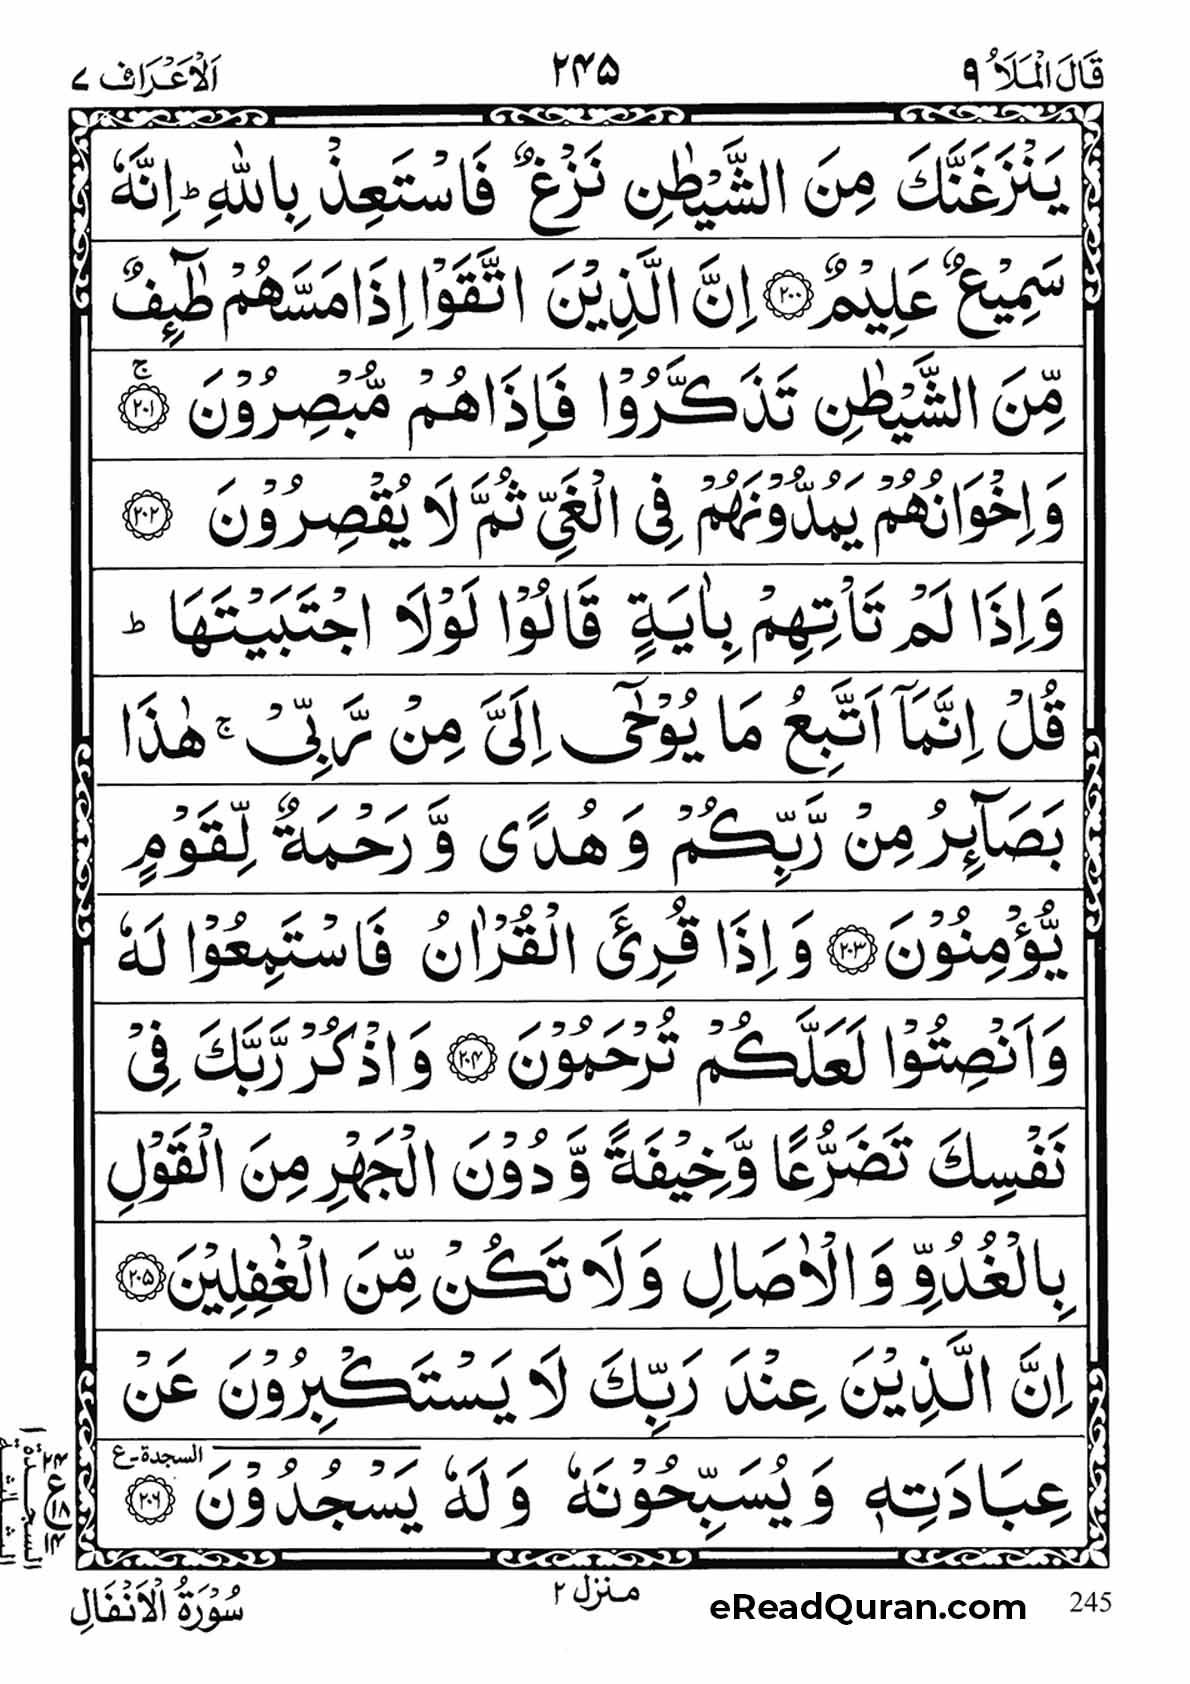 قَالَ الْمَلَاُ ٩ ٢٤٥ اَلْاَعْرَاف ٧
يَنْزَغَنَّكَ مِنَ الشَّيْطٰنِ نَزْغٌ فَاسْتَعِذْ بِاللّٰهِ ؕ اِنَّهٗ
سَمِيْعٌ عَلِيْمٌ ﴿٢٠٠﴾ اِنَّ الَّذِيْنَ اتَّقَوْا اِذَا مَسَّهُمْ طٰٓئِفٌ
مِّنَ الشَّيْطٰنِ تَذَكَّرُوْا فَاِذَا هُمْ مُّبْصِرُوْنَ ﴿٢٠١﴾ ۚ
وَاِخْوَانُهُمْ يَمُدُّوْنَهُمْ فِى الْغَىِّ ثُمَّ لَا يُقْصِرُوْنَ ﴿٢٠٢﴾
وَاِذَا لَمْ تَاْتِهِمْ بِاٰيَةٍ قَالُوْا لَوْلَا اجْتَبَيْتَهَا ؕ
قُلْ اِنَّمَاۤ اَتَّبِعُ مَا يُوْحٰٓى اِلَىَّ مِنْ رَّبِّىْ ۚ هٰذَا
بَصَآئِرُ مِنْ رَّبِّكُمْ وَهُدًى وَّرَحْمَةٌ لِّقَوْمٍ
يُّؤْمِنُوْنَ ﴿٢٠٣﴾ وَاِذَا قُرِئَ الْقُرْاٰنُ فَاسْتَمِعُوْا لَهٗ
وَاَنْصِتُوْا لَعَلَّكُمْ تُرْحَمُوْنَ ﴿٢٠٤﴾ وَاذْكُرْ رَّبَّكَ فِىْ
نَفْسِكَ تَضَرُّعًا وَّخِيْفَةً وَّدُوْنَ الْجَهْرِ مِنَ الْقَوْلِ
بِالْغُدُوِّ وَالْاٰصَالِ وَلَا تَكُنْ مِّنَ الْغٰفِلِيْنَ ﴿٢٠٥﴾
اِنَّ الَّذِيْنَ عِنْدَ رَبِّكَ لَا يَسْتَكْبِرُوْنَ عَنْ
عِبَادَتِهٖ وَيُسَبِّحُوْنَهٗ وَلَهٗ يَسْجُدُوْنَ ﴿٢٠٦﴾ السجدة ع
سُوْرَةُ الْاَنْفَالِ منزل ٢ eReadQuran.com 245